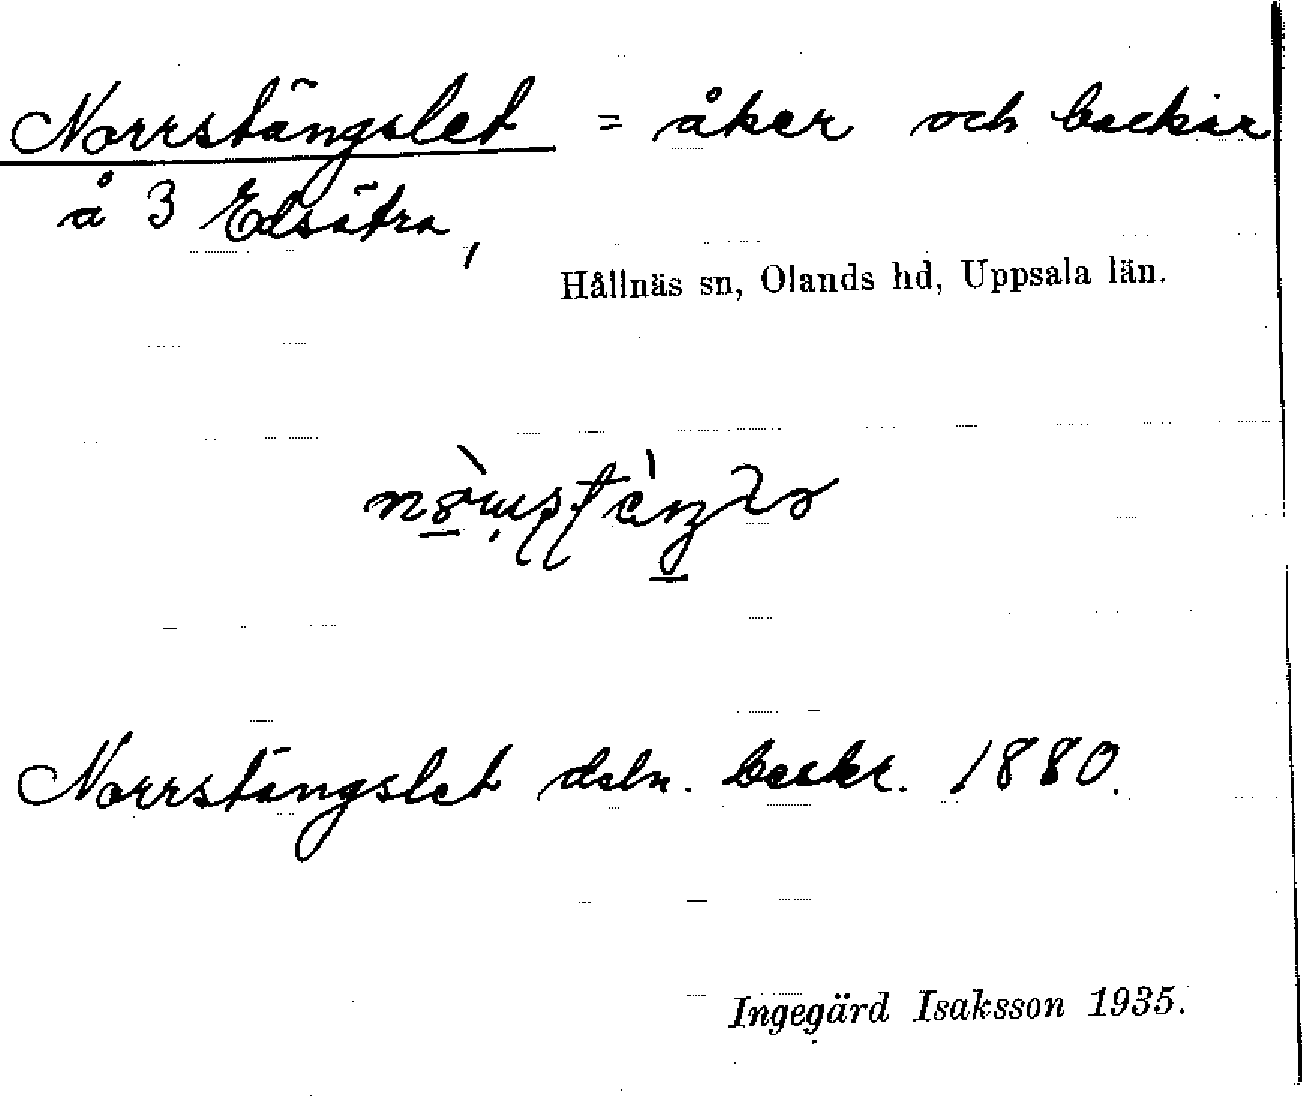 Norrstängslet = åker och backar
å 3 Edsätra,
Hållnäs sn, Olands hd, Uppsala län.
Norrstängslet dsln. beskr. 1880.
Ingegärd Isaksson 1935.